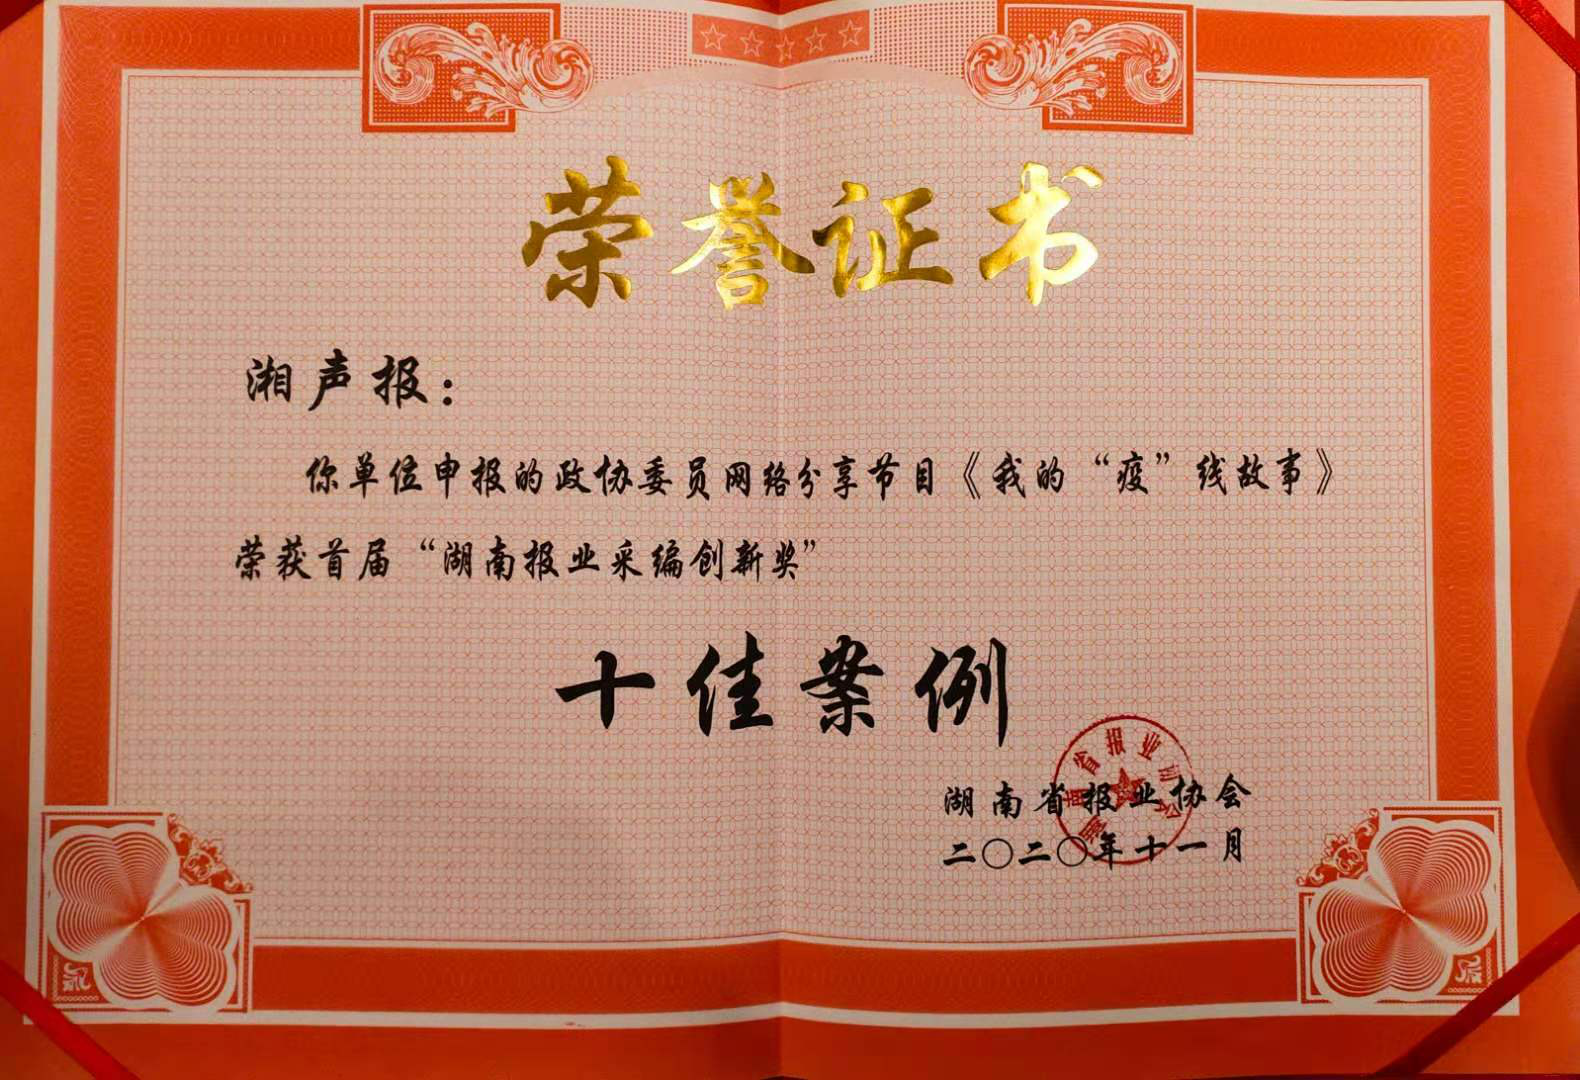 荣誉证书
湘声报：
你单位申报的政协委员网络分享节目《我的“疫”线故事》
荣获首届“湖南报业采编创新奖”
十佳案例
湖南省报业协会
二〇二〇年十一月
湖南省报业协会